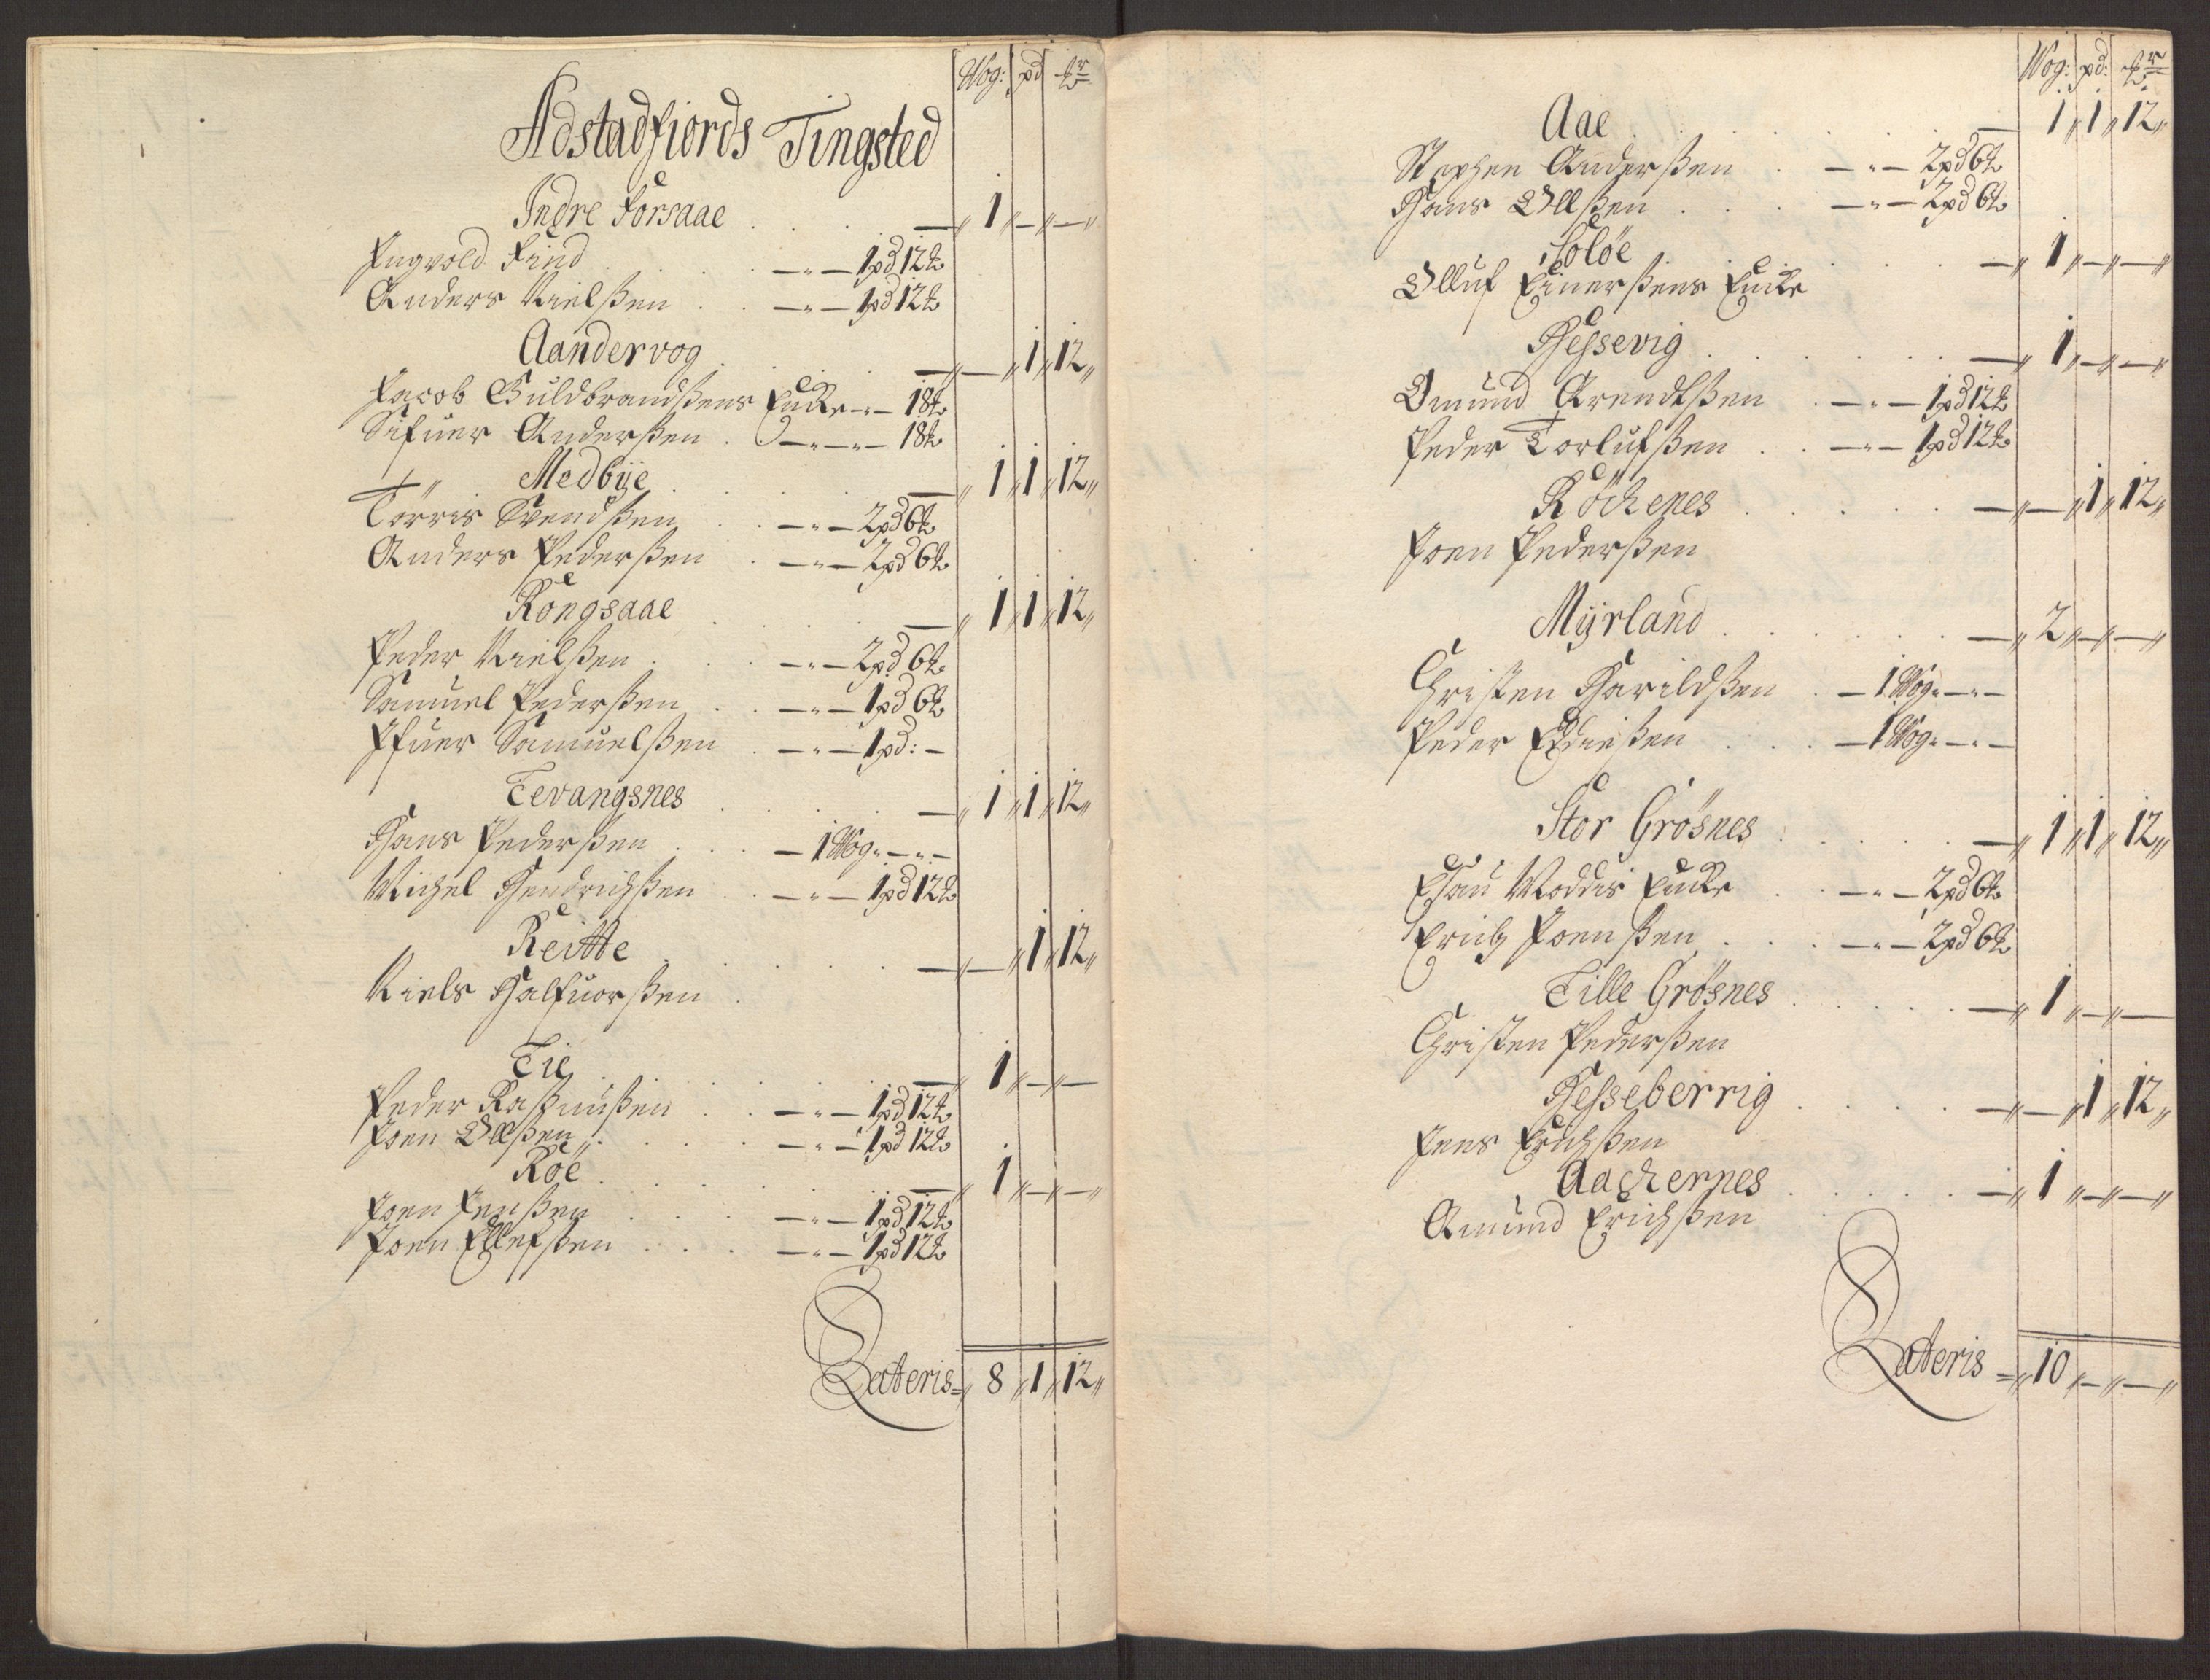 Wog: pd tr
Adstadfiords Tingsted
Indre Forsaae . . . . — " 1 " — " — "
Ingvold Find . . . — " — 1 pd 12 t
Anders Nielßen . . — " — 1 pd 12 t
Aandervog . . . . — " — " 1 " 12 "
Jacob Guldbrandßens Encke — " — 18 t
Sifuer Anderßen . — " — " — 18 t
Medbÿe . . . . — " 1 " 1 " 12 "
Törris Svendßen . . — " — 2 pd 6 t
Anders Pederßen . — " — 2 pd 6 t
Kongsaae . . . . — " 1 " 1 " 12 "
Peder Nielßen . . — " — 2 pd 6 t
Samuel Pederßen . . — " — 1 pd 6 t
Ifuer Samuelßen . — " — 1 pd : —
Tevangsnes . . . . — " 1 " 1 " 12 "
Hans Pederßen . . . — 1 Wog " — " —
Michel Hendrichßen . . — " — 1 pd 12 t
Reitte . . . . — " — " 1 " 12 "
Niels Halfuorßen .
Tie . . . . — " 1 " — " —
Peder Raßmußen . . — " — 1 pd 12 t
Joen Olleßen . . . — " — 1 pd 12 t
Röe . . . . — " 1 " — " — "
Joen Jenßen . . . — " — 1 pd 12 t
Joen Ellefßen . . . — " — 1 pd 12 t
Lateris = " 8 " 1 " 12 "
Wog: pd: tr
Aae . . . . — 1 " 1 " 12 "
Stephen Anderßen . — " — 2 pd 6 t
Hans Ollßen . . . — " — 2 pd 6 t
Foløe . . . . — " 1 " — " — "
Olluf Einerßens Encke
Hessevig . . . . — " 1 " — " — "
Omund Arendtßen . — " — 1 pd 12 t
Peder Torlufßen . . — " — 1 pd 12 t
Röckenes . . . . — " — " 1 " 12 "
Joen Pederßen
Mÿrland . . . . — " 2 " — " — "
Christen Harildßen . — 1 Wog " — " —
Peder . . . — 1 Wog " — " —
Stor Grösnes . . . . — " 1 " 1 " 12 "
Esau Encke . . — " — 2 pd 6 t
Erich Joenßen . . . — " — 2 pd 6 t
Lille Grösnes . . . . — " 1 " — " —
Christen Pederßen
Hesseberrig . . . . — " — " 1 " 12 "
Jens Erichßen
Aackernes . . . . — " 1 " — " — "
Amund Erichßen
Lateris = " 10 " — " — "